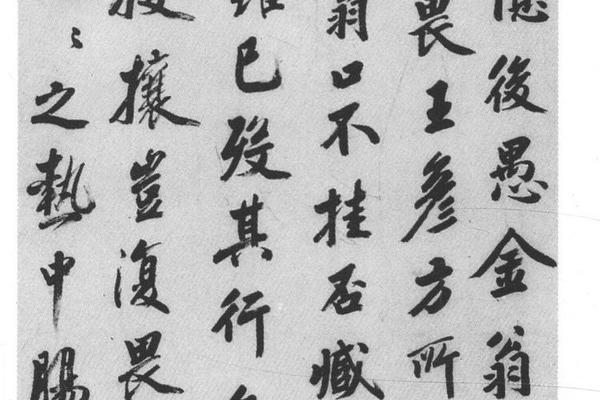 後愚金翁
畏王彥方所
翁口不挂否臧
雖已歿其行
攘豈復畏
〻之熱中腸